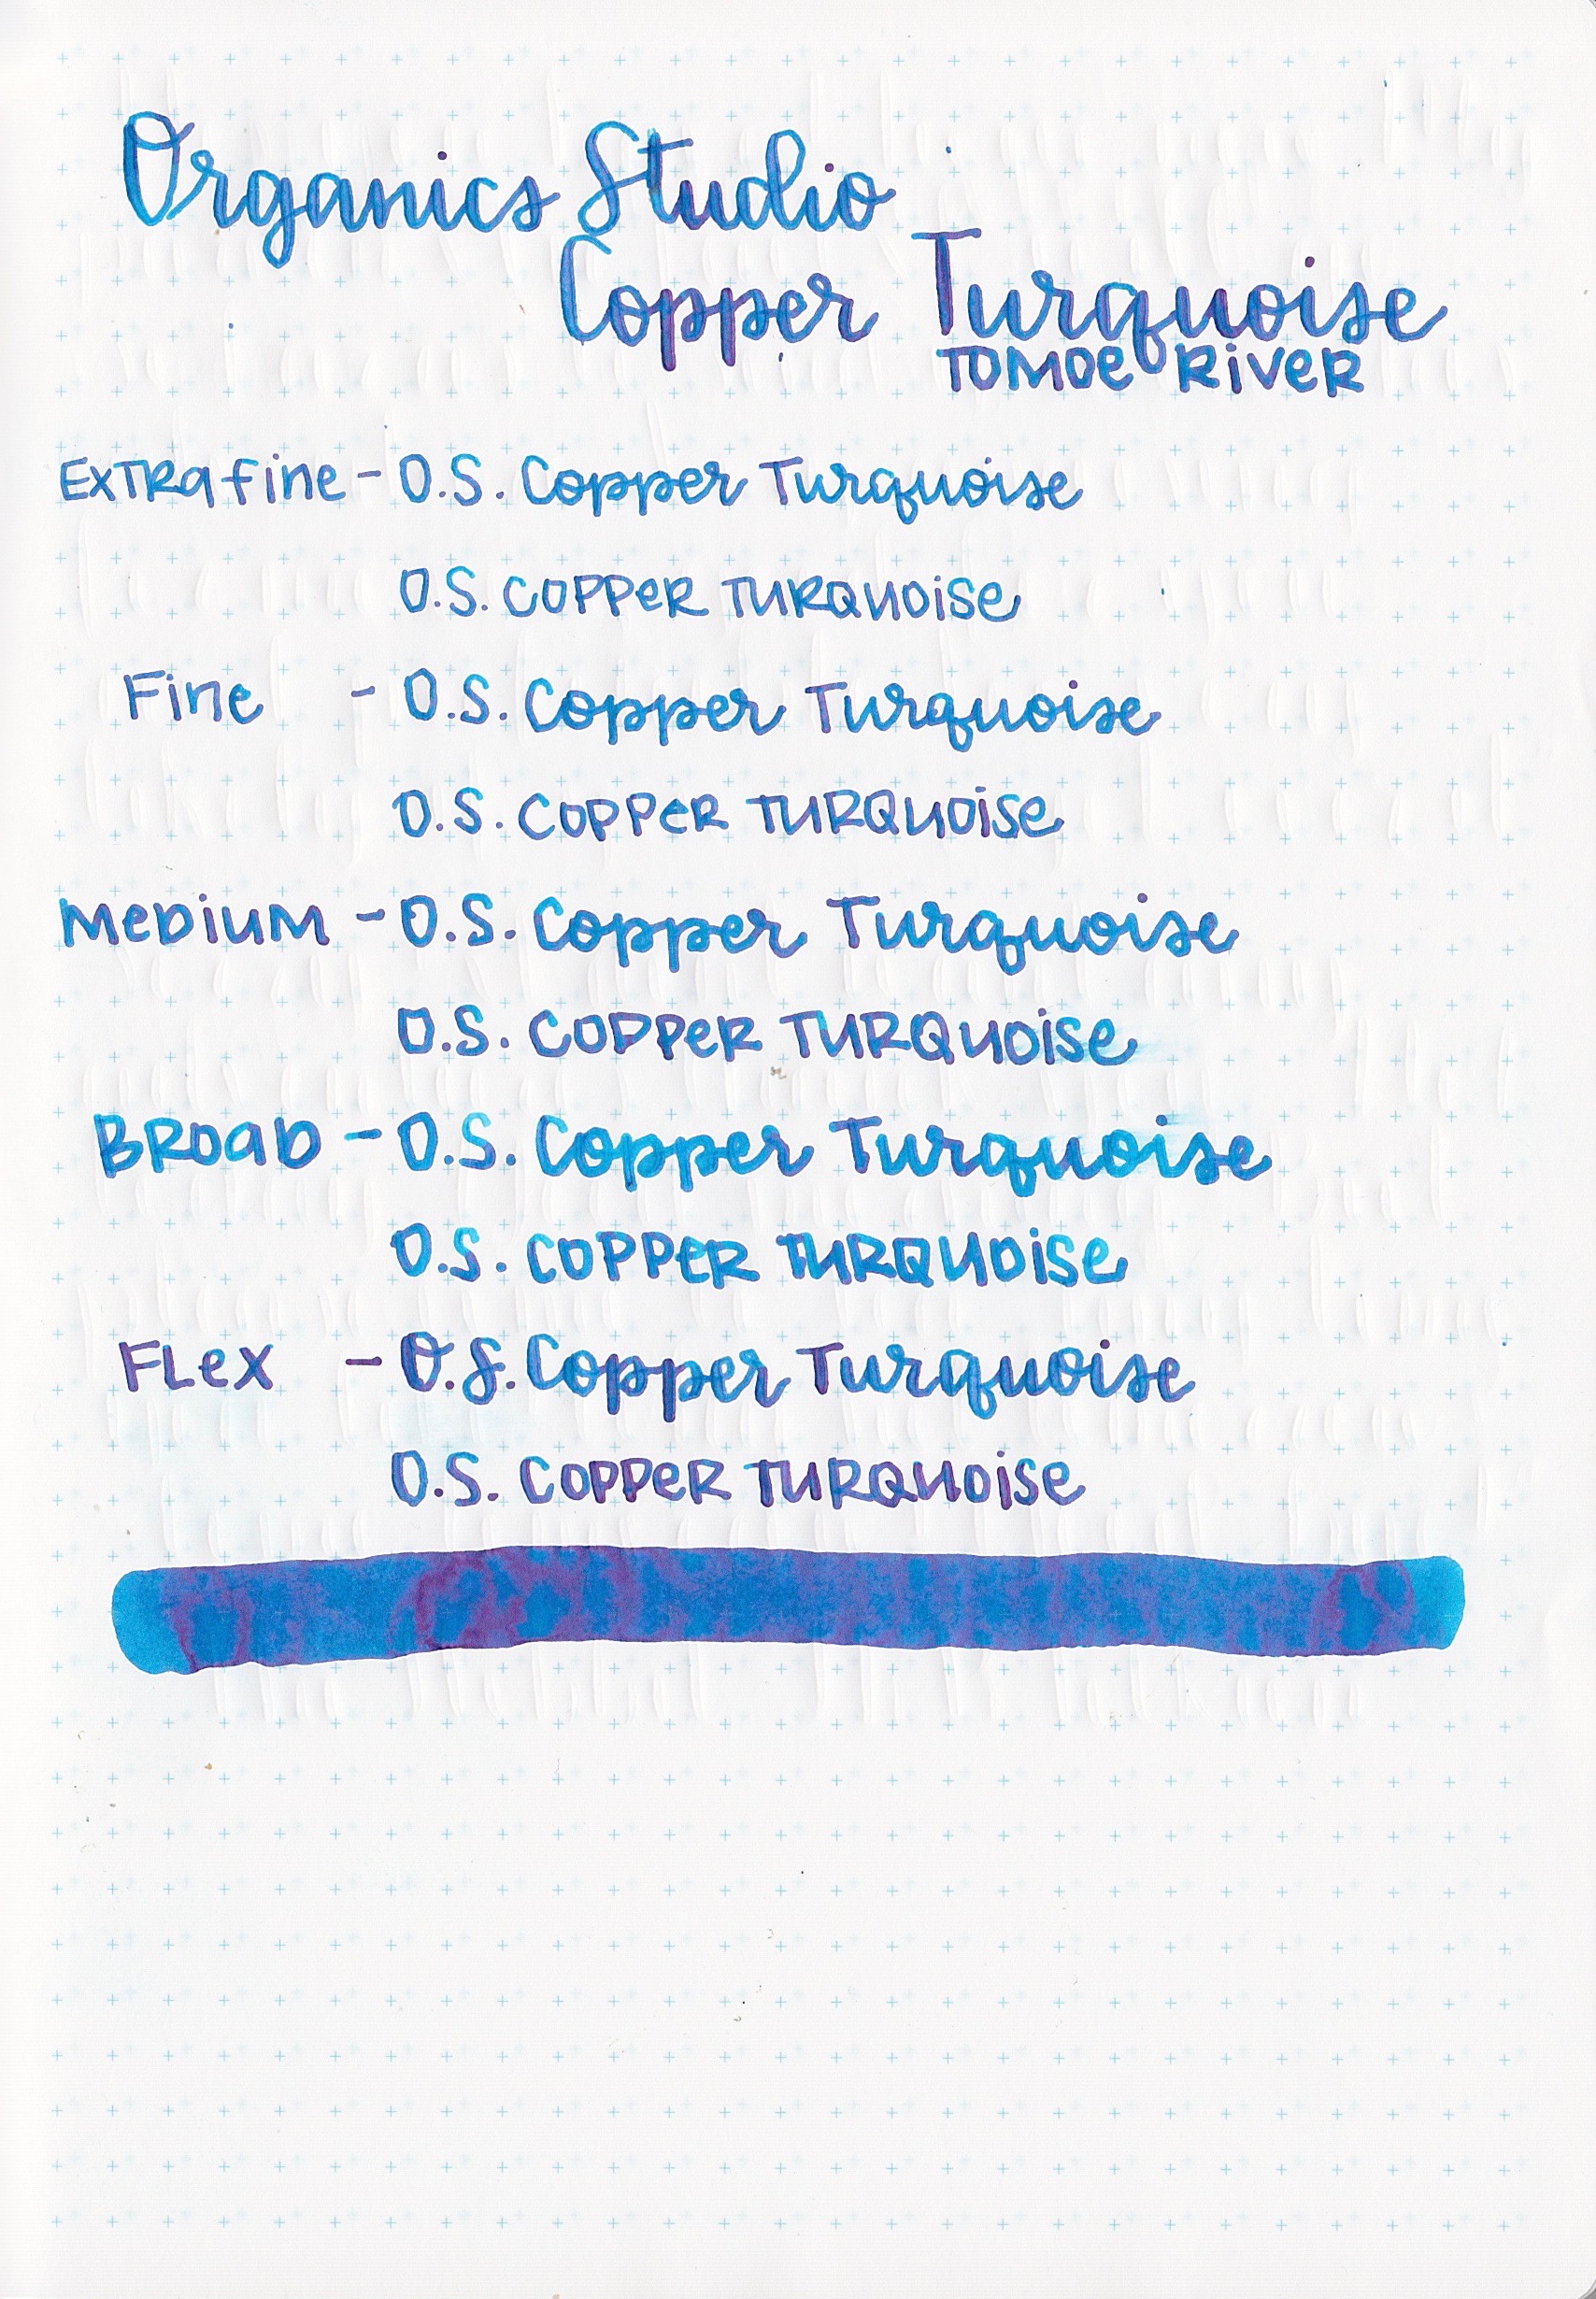 Organics Studio
Copper Turquoise
TOMOE RiVeR
ExTRafine - O.S. Copper Turquoise
O.S. COPPeR TURQUOiSe
Fine - O.S. Copper Turquoise
O.S. COPPeR TURQUOiSe
MeDiUM - O.S. Copper Turquoise
O.S. COPPeR TURQUOiSe
BROaD - O.S. Copper Turquoise
O.S. COPPeR TURQUOiSe
FLeX - O.S. Copper Turquoise
O.S. COPPeR TURQUOiSe